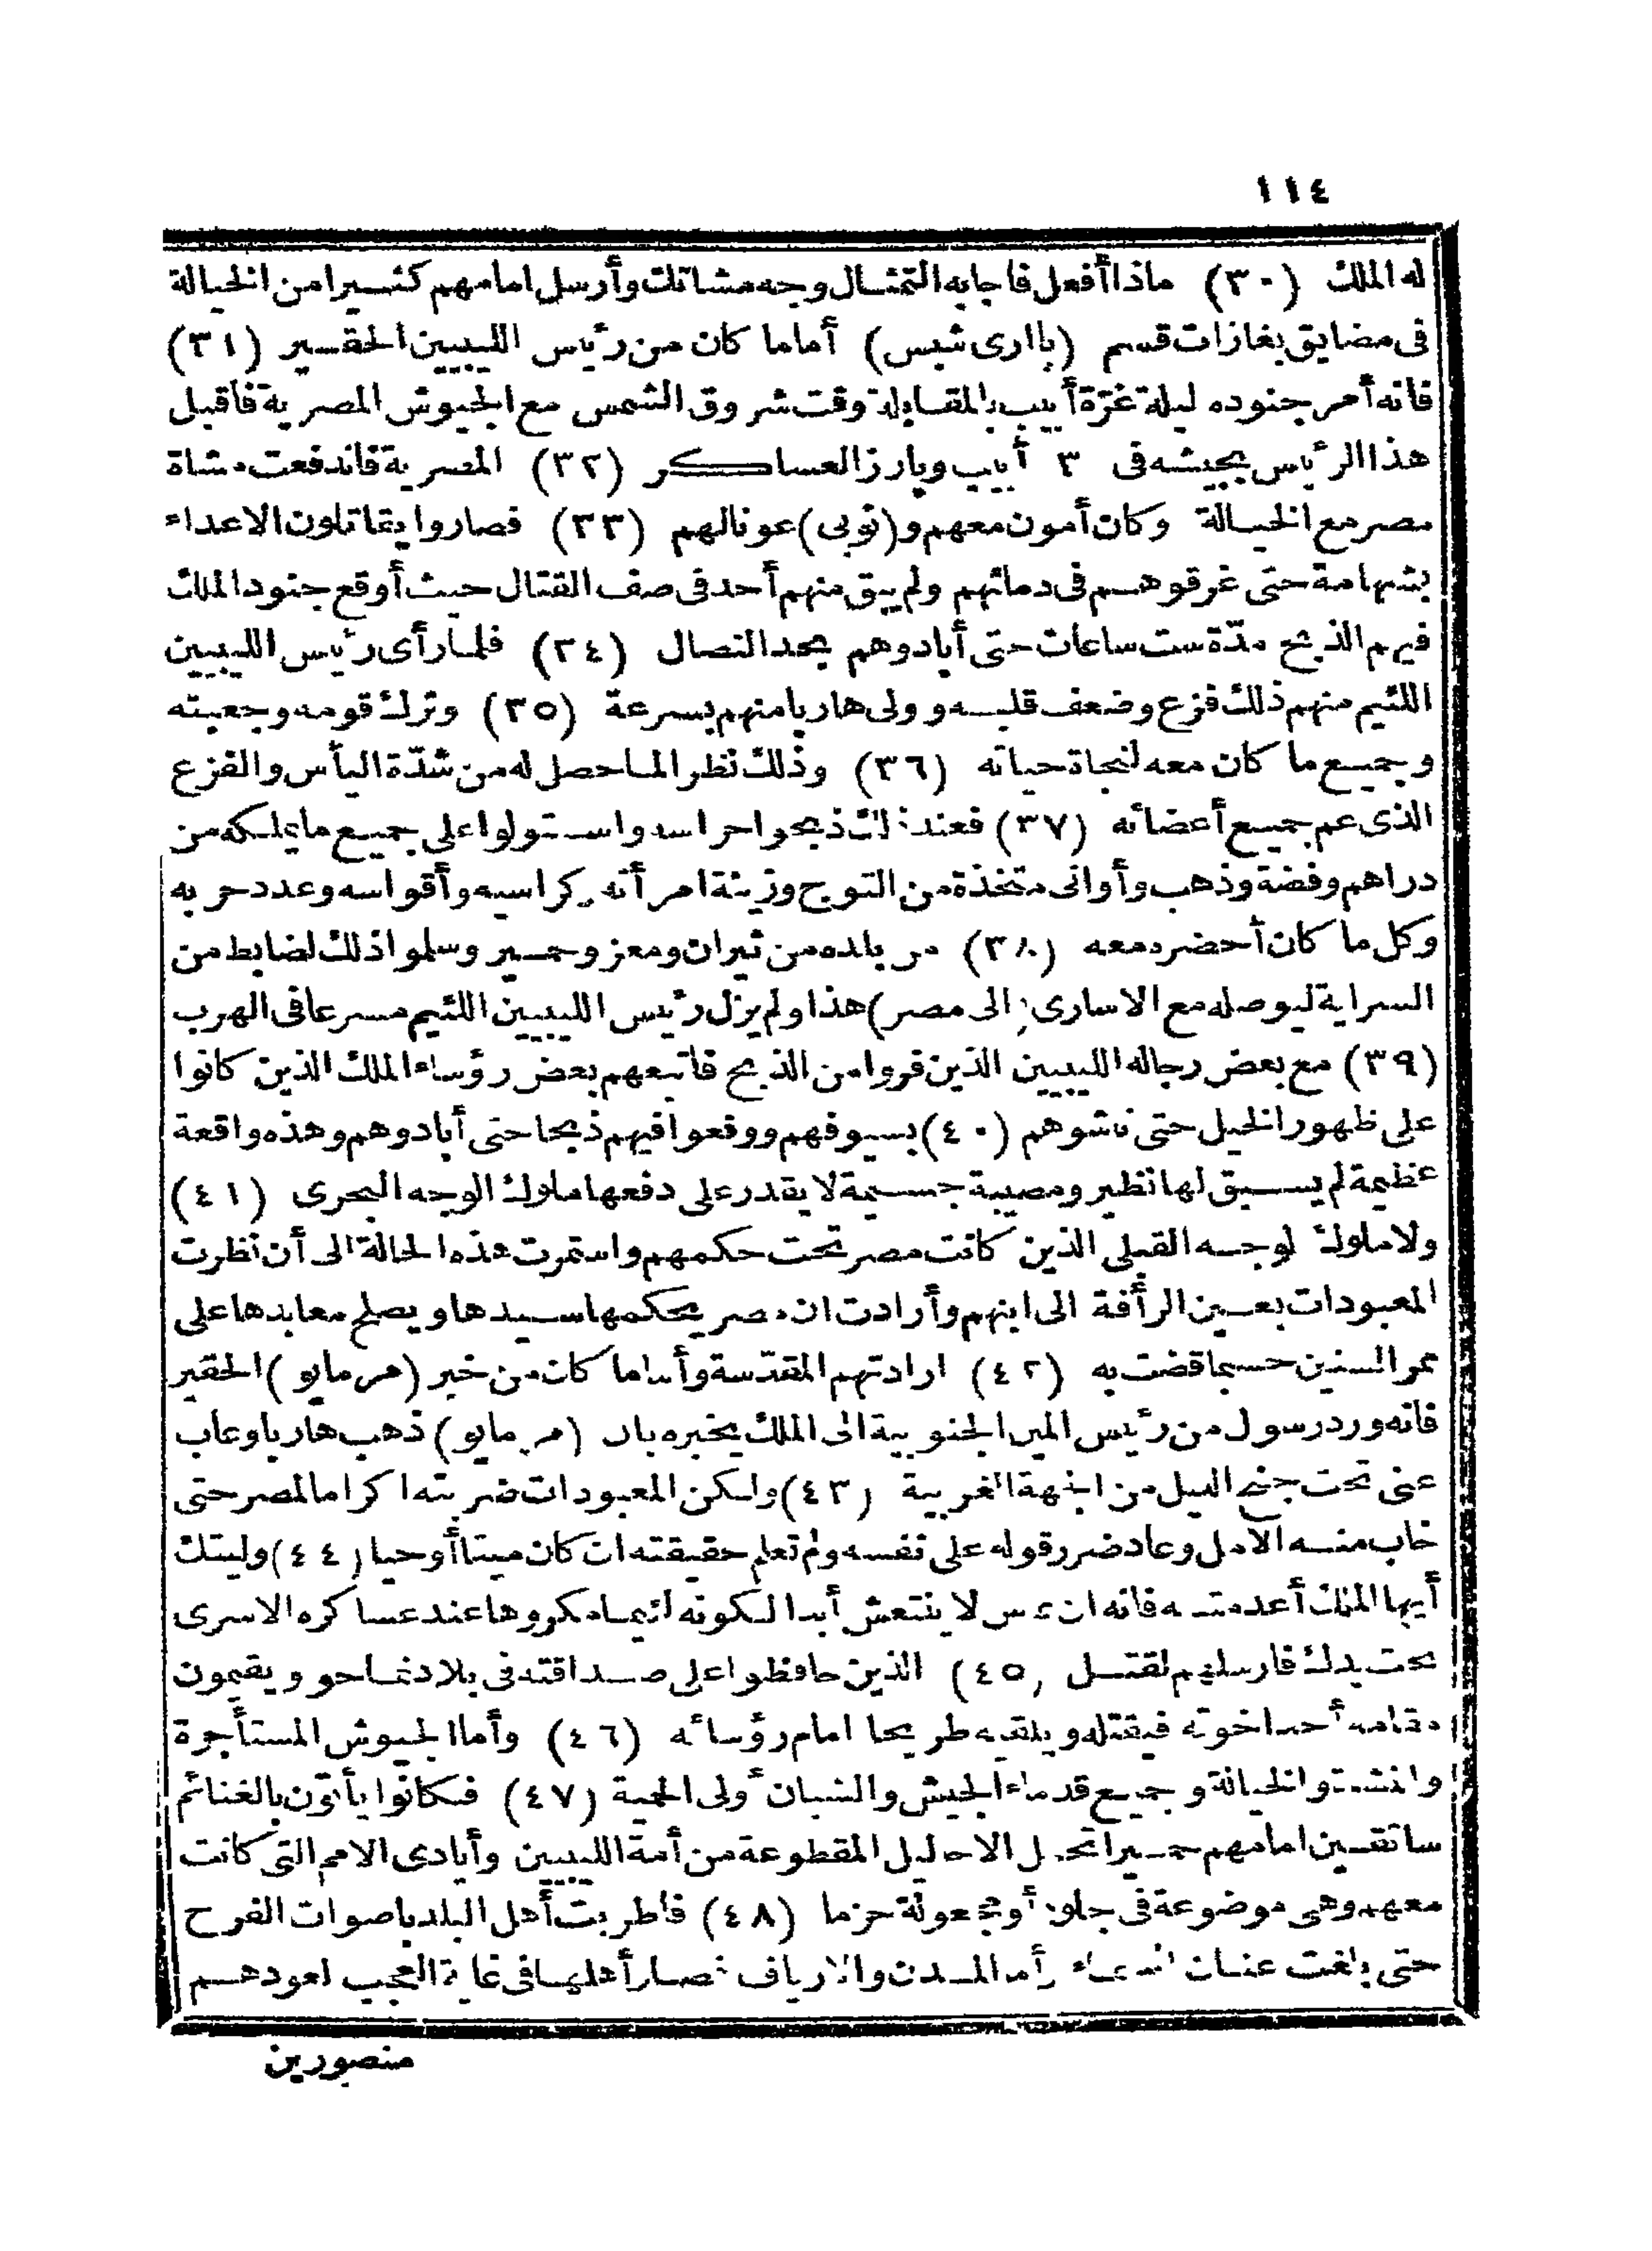 ١١٤
له الملك (٣٠) ماذا أفعل فاجابه التمثال وجه مشاتك وأرسل امامهم كثيرا من الخيالة
فى مضايق بغازات قسم (باارى شبس) أما ما كان من رئيس الليبيين الحقير (٣١)
فانه أمر جنوده ليلة غرّة أبيب بالمقابلة وقت شروق الشمس مع الجيوش المصرية فاقبل
هذا الرئيس بجيشه فى ٣ أبيب وبارز العساكر (٣٢) المصرية فاندفعت مشاة
مصر مع الخيالة وكان أمون معهم و (نوبى) عونا لهم (٣٣) فصاروا يقاتلون الاعداء
بشهامة حتى غرقوهم فى دمائهم ولم يبق منهم أحد فى صف القتال حيث أوقع جنود الملك
فيهم الذبح مدّة ست ساعات حتى أبادوهم بحد النصال (٣٤) فلما رأى رئيس الليبيين
اللئيم منهم ذلك فزع وضعف قلبه وولى هاربا منهم بسرعة (٣٥) وترك قومه وجعبته
وجميع ما كان معه لنجاة حياته (٣٦) وذلك نظرا لما حصل له من شدّة اليأس والفزع
الذى عم جميع أعضائه (٣٧) فعند ذلك ذبحوا حراسه واستولوا على جميع ما يملكه من
دراهم وفضة وذهب وأوانى متخذة من التوج وزينة امرأته وكراسيه وأقواسه وعدد حربه
وكل ما كان أحضره معه (٣٨) من بلده من ثيران ومعز وحمير وسلموا ذلك لضابط من
السراية ليوصله مع الاسارى (الى مصر) هذا ولم يزل رئيس الليبيين اللئيم مسرعا فى الهرب
(٣٩) مع بعض رجاله الليبيين الذين فروا من الذبح فاتبعهم بعض رؤساء الملك الذين كانوا
على ظهور الخيل حتى ناشوهم (٤٠) بسيوفهم ووقعوا فيهم ذبحا حتى أبادوهم وهذه واقعة
عظيمة لم يسبق لها نظير ومصيبة جسيمة لا يقدر على دفعها ملوك الوجه البحرى (٤١)
ولا ملوك لوجه القبلى الذين كانت مصر تحت حكمهم واستمرت هذه الحالة الى أن نظرت
المعبودات بعين الرأفة الى ابنهم وأرادت ان مصر يحكمها سيدها ويصلح معابدها على
ممر السنين حسبما قضت به (٤٢) ارادتهم المقدّسة وأما ما كان من خبر (مرمايو) الحقير
فانه ورد رسول من رئيس المير الجنوبية الى الملك يخبره بان (مرمايو) ذهب هاربا وغاب
عنى تحت جنح الليل من الجهة الغربية (٤٣) ولكن المعبودات ضربته اكراما لمصر حتى
خاب منه الامل وعاد ضرر قوله على نفسه ولم تعلم حقيقته ان كان ميتا أو حيا (٤٤) وليتك
أيها الملك أعدمته فانه ان لا ينتعش أبدا لكونه لئيما مكروها عند عساكره الاسرى
تحت يدك فارسلهم لقتل (٤٥) الذين حافظوا على صداقته فى بلاد تماحو ويقيمون
مقامه أحد اخوته فيقتله ويلقيه طريحا امام رؤسائه (٤٦) وأما الجيوش المستأجرة
والخيالة وجميع قدماء الجيش والشبان أولى الحمية (٤٧) فكانوا يأتون بالغنائم
سائقين امامهم حميرا تحمل الاحاليل المقطوعة من أمة الليبيين وأيادى الامم التى كانت
معهم وهى موضوعة فى جلود أو مجعولة حزما (٤٨) فاطربت أهل البلد باصوات الفرح
حتى بلغت عنان السماء أما المدن والارياف فصار أهلها فى غاية العجب لعودهم
منصورين